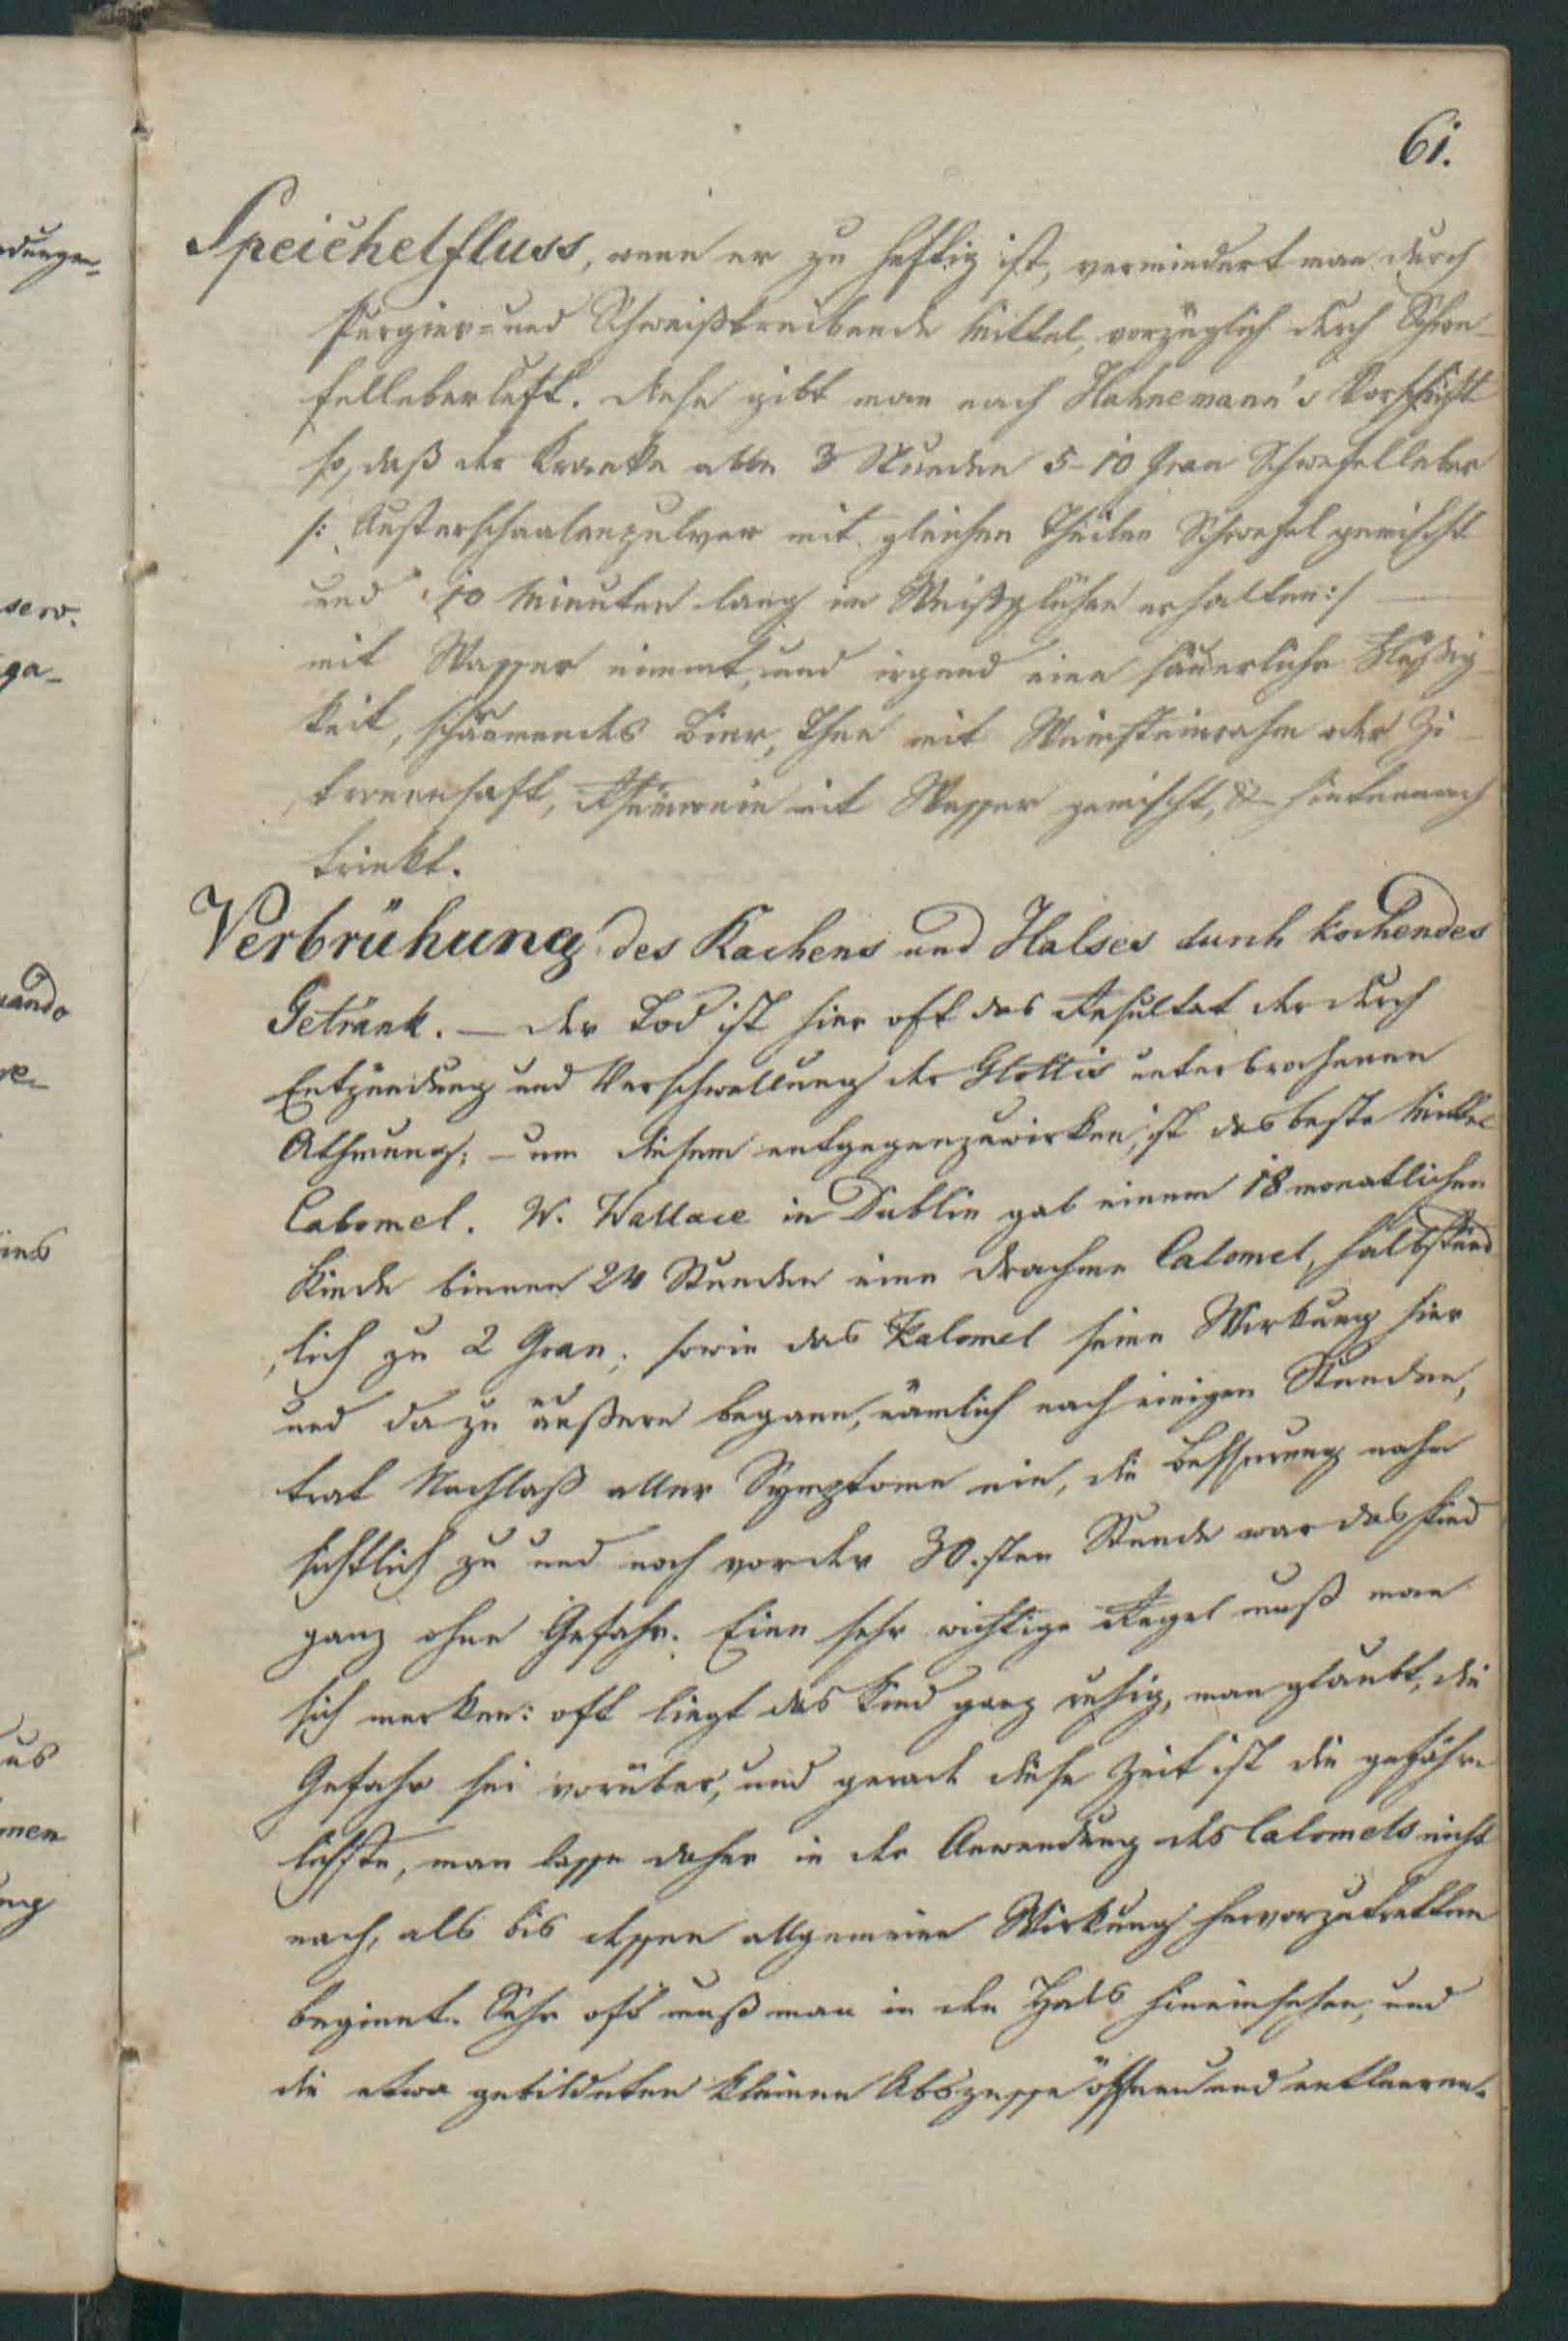 61.
Speichelfluss, wenn er zu heftig ist, vermindert man durch
Purgier= und Schweißtreibende Mittel, vorzüglich durch Schwe-
felleberluft. Diese gibt man nach Hahnemann's Vorschrift
so, daß der Kranke alle 3 Stunden 5-10 Gran Schwefelleber
/: Austerschaalenpulver mit gleichen Theilen Schwefel gemischt
und 10 Minuten lang im Weißglühen erhalten :/
mit Wasser nimmt, und irgend eine säuerliche Flüßig-
keit, schäumendes Bier, Thee mit Weinsteinrahm oder Zi-
tronensaft, Rheinwein mit Wasser gemischt, & hintennach
trinkt.
Verbrühung des Rachens und Halses durch kochendes
Getränk. — Der Tod ist hier oft das Resultat der durch
Entzündung und Verschwellung der Glottis unterbrochenen
Athmung; — um diesem entgegenzuwirken, ist das beste Mittel
Calomel. W. Wallace in Dublin gab einem 18 monatlichen
Kinde binnen 24 Stunden eine Drachme Calomel, halbstünd
lich zu 2 Gran; sowie das Kalomel seine Wirkung hier
und dazu äußern begann, nämlich nach einigen Stunden,
trat Nachlaß aller Symptome ein, die Besserung nahm
sichtlich zu und noch vor der 30.sten Stunde war das Kind
ganz ohne Gefahr. Eine sehr wichtige Regel muß man
sich merken: oft liegt das Kind ganz ruhig, man glaubt, die
Gefahr sei vorüber, und gerade diese Zeit ist die gefähr-
lichste, man lasse daher in der Anwendung des Calomels nicht
nach, als bis dessen allgemeine Wirkung hervorzutretten
beginnt. Sehr oft muß man in den Hals hineinsehen, und
die etwa gebildeten kleinen Abszesse öffnen und entleeren.